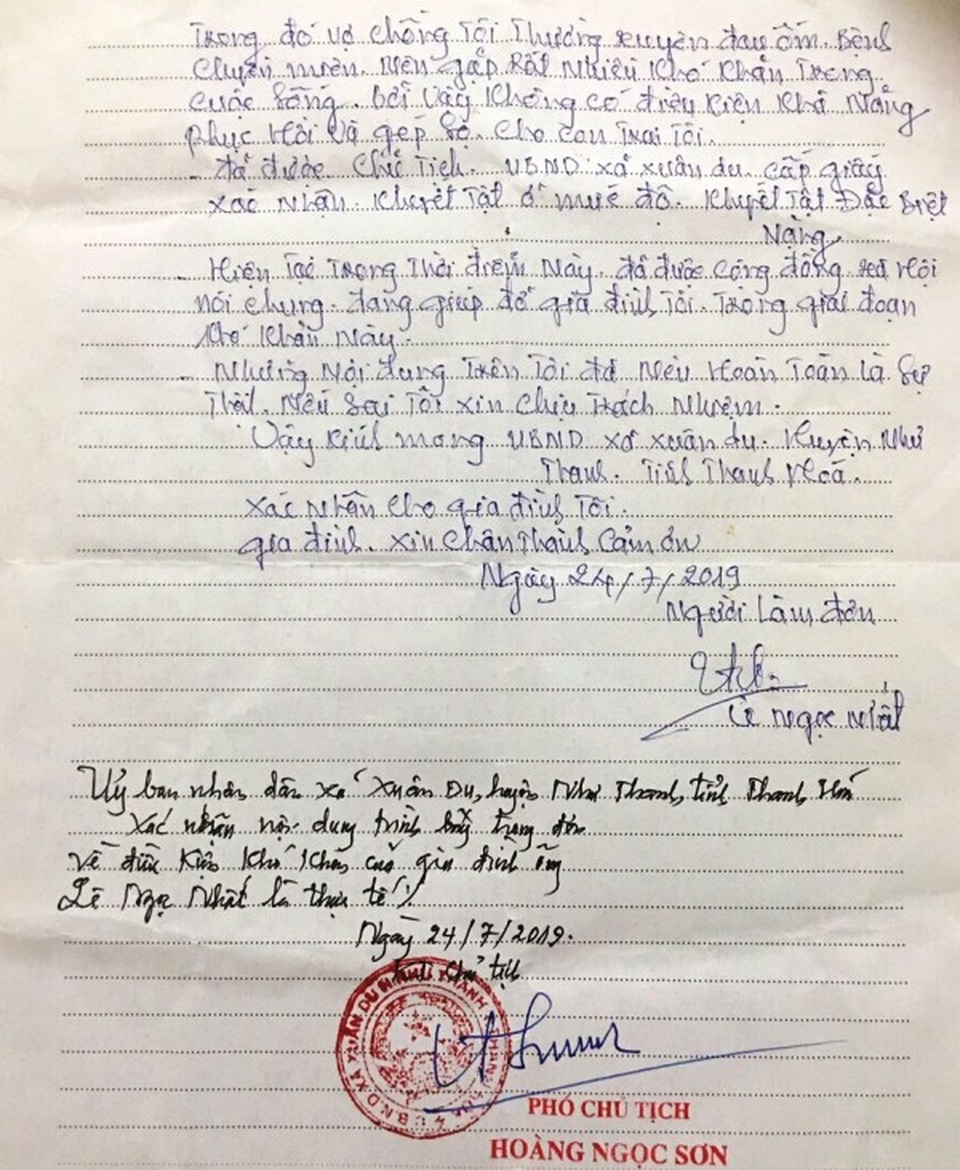 Trong đó vợ chồng Tôi Thường xuyên đau ốm. Bệnh
Chuyên miên. Nên gặp Rất Nhiều Khó Khăn Trong
Cuộc Sống. bởi Vậy Không có điều Kiện Khả Năng
phục Hồi Và gép Sọ. Cho con Trai Tôi.
- đã được Chủ Tịch. UBND xã xuân du. cấp giấy
xác Nhận. Khuyết Tật ở mức độ. Khuyết Tật Đặc Biệt
Nặng.
- Hiện Tại Trong Thời điểm Này. đã được Cộng đồng xã Hội
nói chung. đang giúp đỡ gia đình Tôi. Trong giai đoạn
Khó Khăn Này.
- Những Nội dung Trên Tôi đã Nêu Hoàn Toàn Là Sự
Thật. Nếu Sai Tôi xin Chịu Trách Nhiệm.
Vậy Kính mong UBND xã xuân du. Huyện Như
Thanh. Tỉnh Thanh Hoá.
Xác Nhận Cho gia đình Tôi.
gia đình. xin Chân Thành Cảm ơn
Ngày 24/7/2019
Người Làm đơn
Lê Ngọc Nhất
Uỷ ban nhân dân xã Xuân Du, huyện Như Thanh, tỉnh Thanh Hoá
Xác nhận nội dung trình bày trong đơn
về điều kiện khó khăn của gia đình ông
Lê Ngọc Nhất là thực tế!
Ngày 24/7/2019.
K/T Chủ tịch
U.B.N.D XÃ XUÂN DU H. NHƯ THANH
PHÓ CHỦ TỊCH
HOÀNG NGỌC SƠN